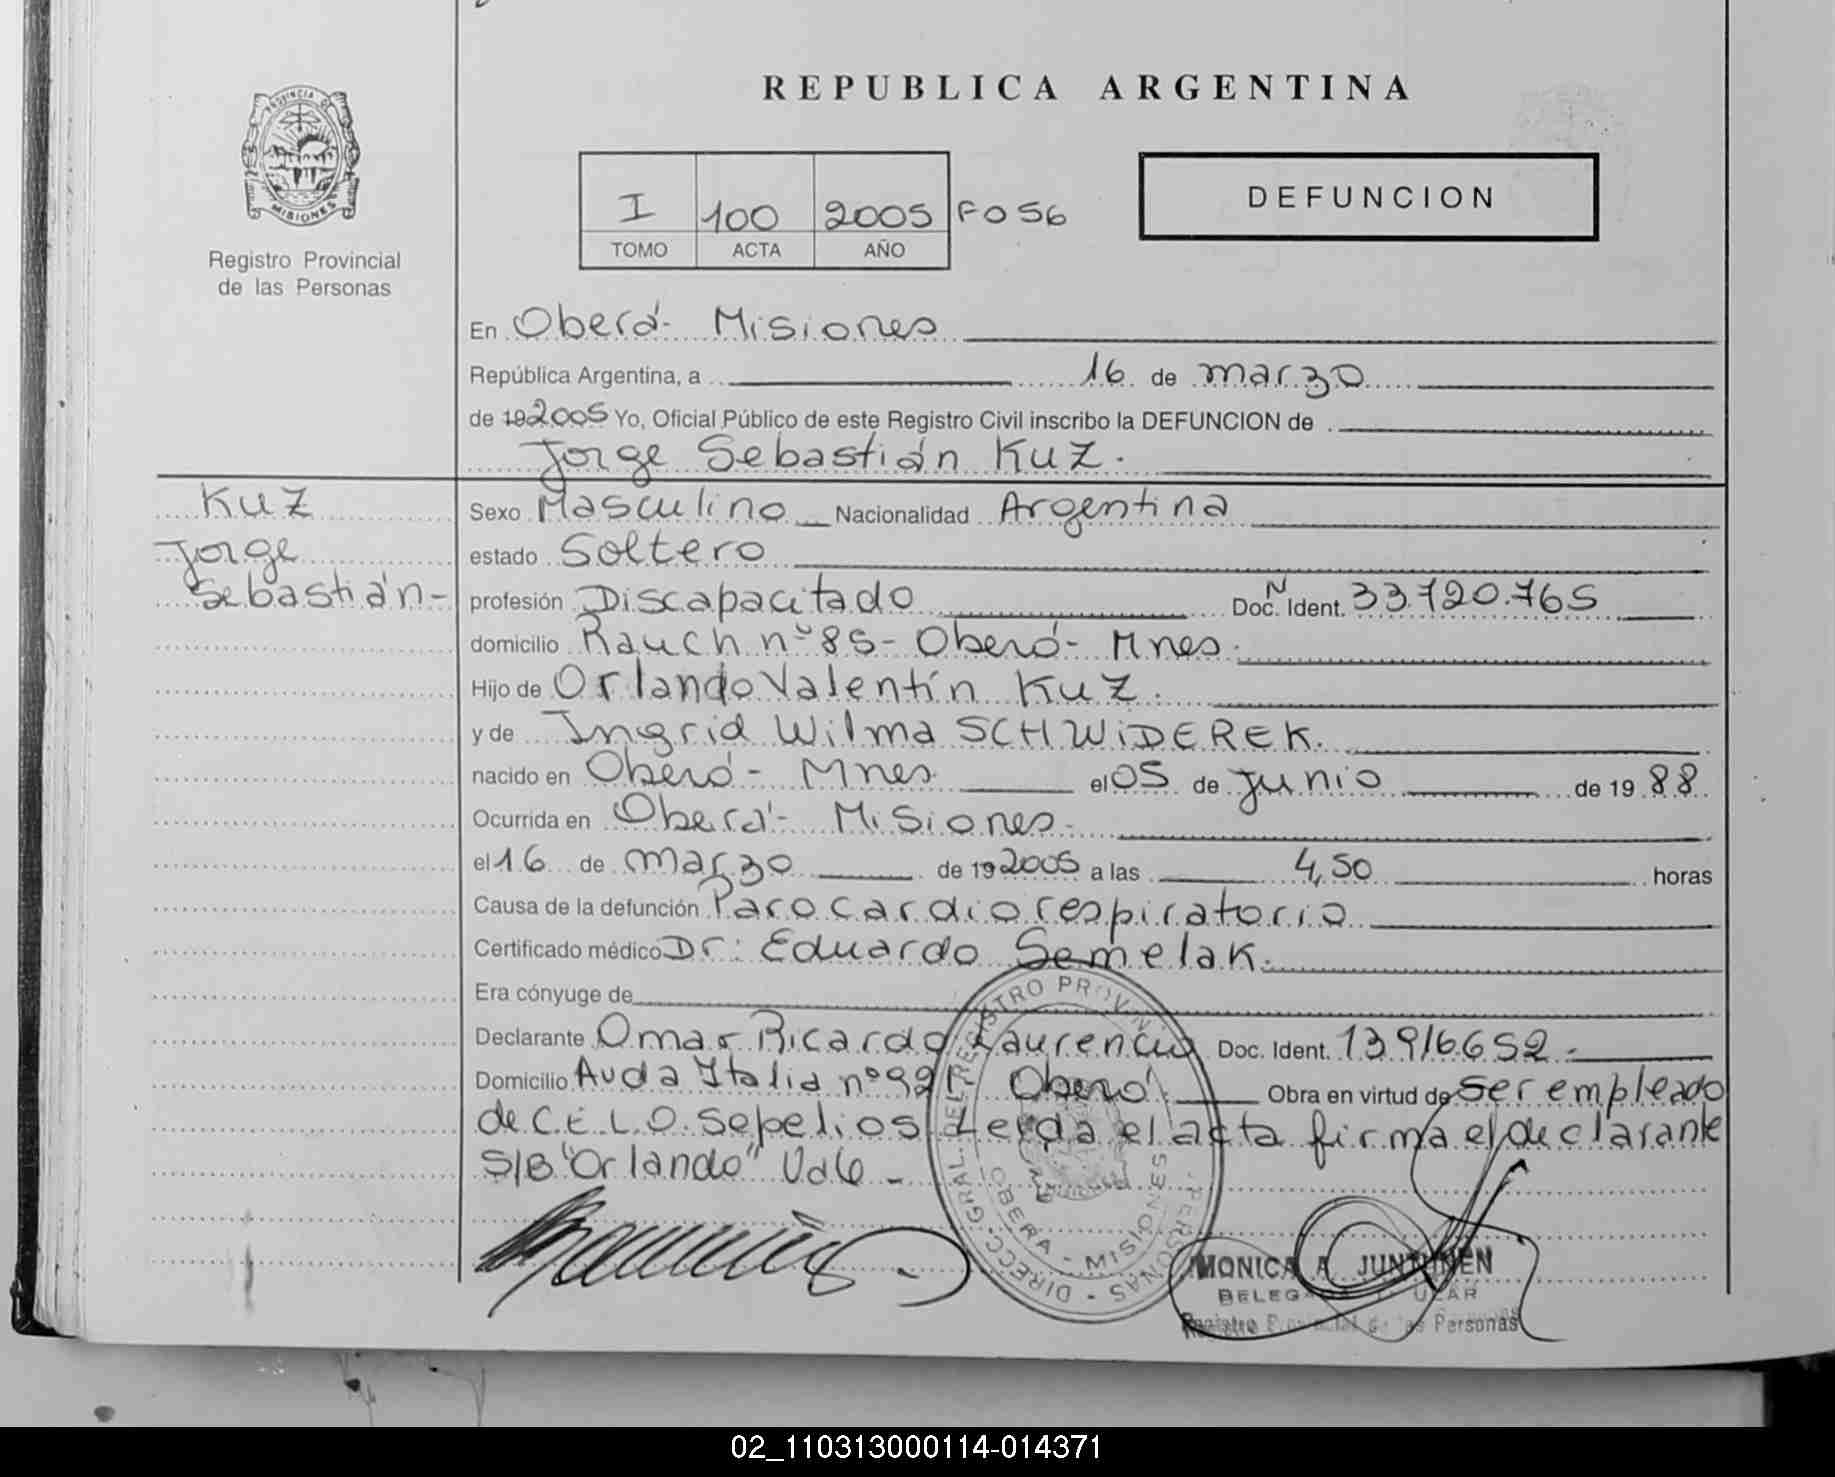 REPUBLICA ARGENTINA
PROVINCIA DE
MISIONES
Registro Provincial
de las Personas
I 100 2005 Fo 56
TOMO ACTA AÑO
DEFUNCION
En Oberá- Misiones
República Argentina, a 16 de marzo
de 192005 Yo, Oficial Público de este Registro Civil inscribo la DEFUNCION de
Jorge Sebastián Kuz.
Kuz
Jorge
Sebastián-
Sexo Masculino Nacionalidad Argentina
estado Soltero
profesión Discapacitado Doc. Ident. N 33.720.765
domicilio Rauch nº 85- Oberá- Mnes.
Hijo de Orlando Valentín Kuz.
y de Ingrid Wilma SCHWiDEREK.
nacido en Oberá- Mnes. el 05 de junio de 1988
Ocurrida en Oberá- Misiones-
el 16 de marzo de 192005 a las 4,50 horas
Causa de la defunción Paro cardiorespiratorio
Certificado médico Dr: Eduardo Semelak.
Era cónyuge de
Declarante Omar Ricardo Laurenciu Doc. Ident. 13916652-
Domicilio Avda Italia nº 921 Oberá. Obra en virtud de Ser empleado
de C.E.L.O. Sepelios Leida el acta firma el declarante
S/B "Orlando" Vale -
DIRECC. GRAL. DEL REGISTRO PROVINC PERSONAS
OBERA - MISIONES
MONICA A JUNTUNEN
DELEGADA TITULAR
Registro Provincial de las Personas
02_110313000114-014371